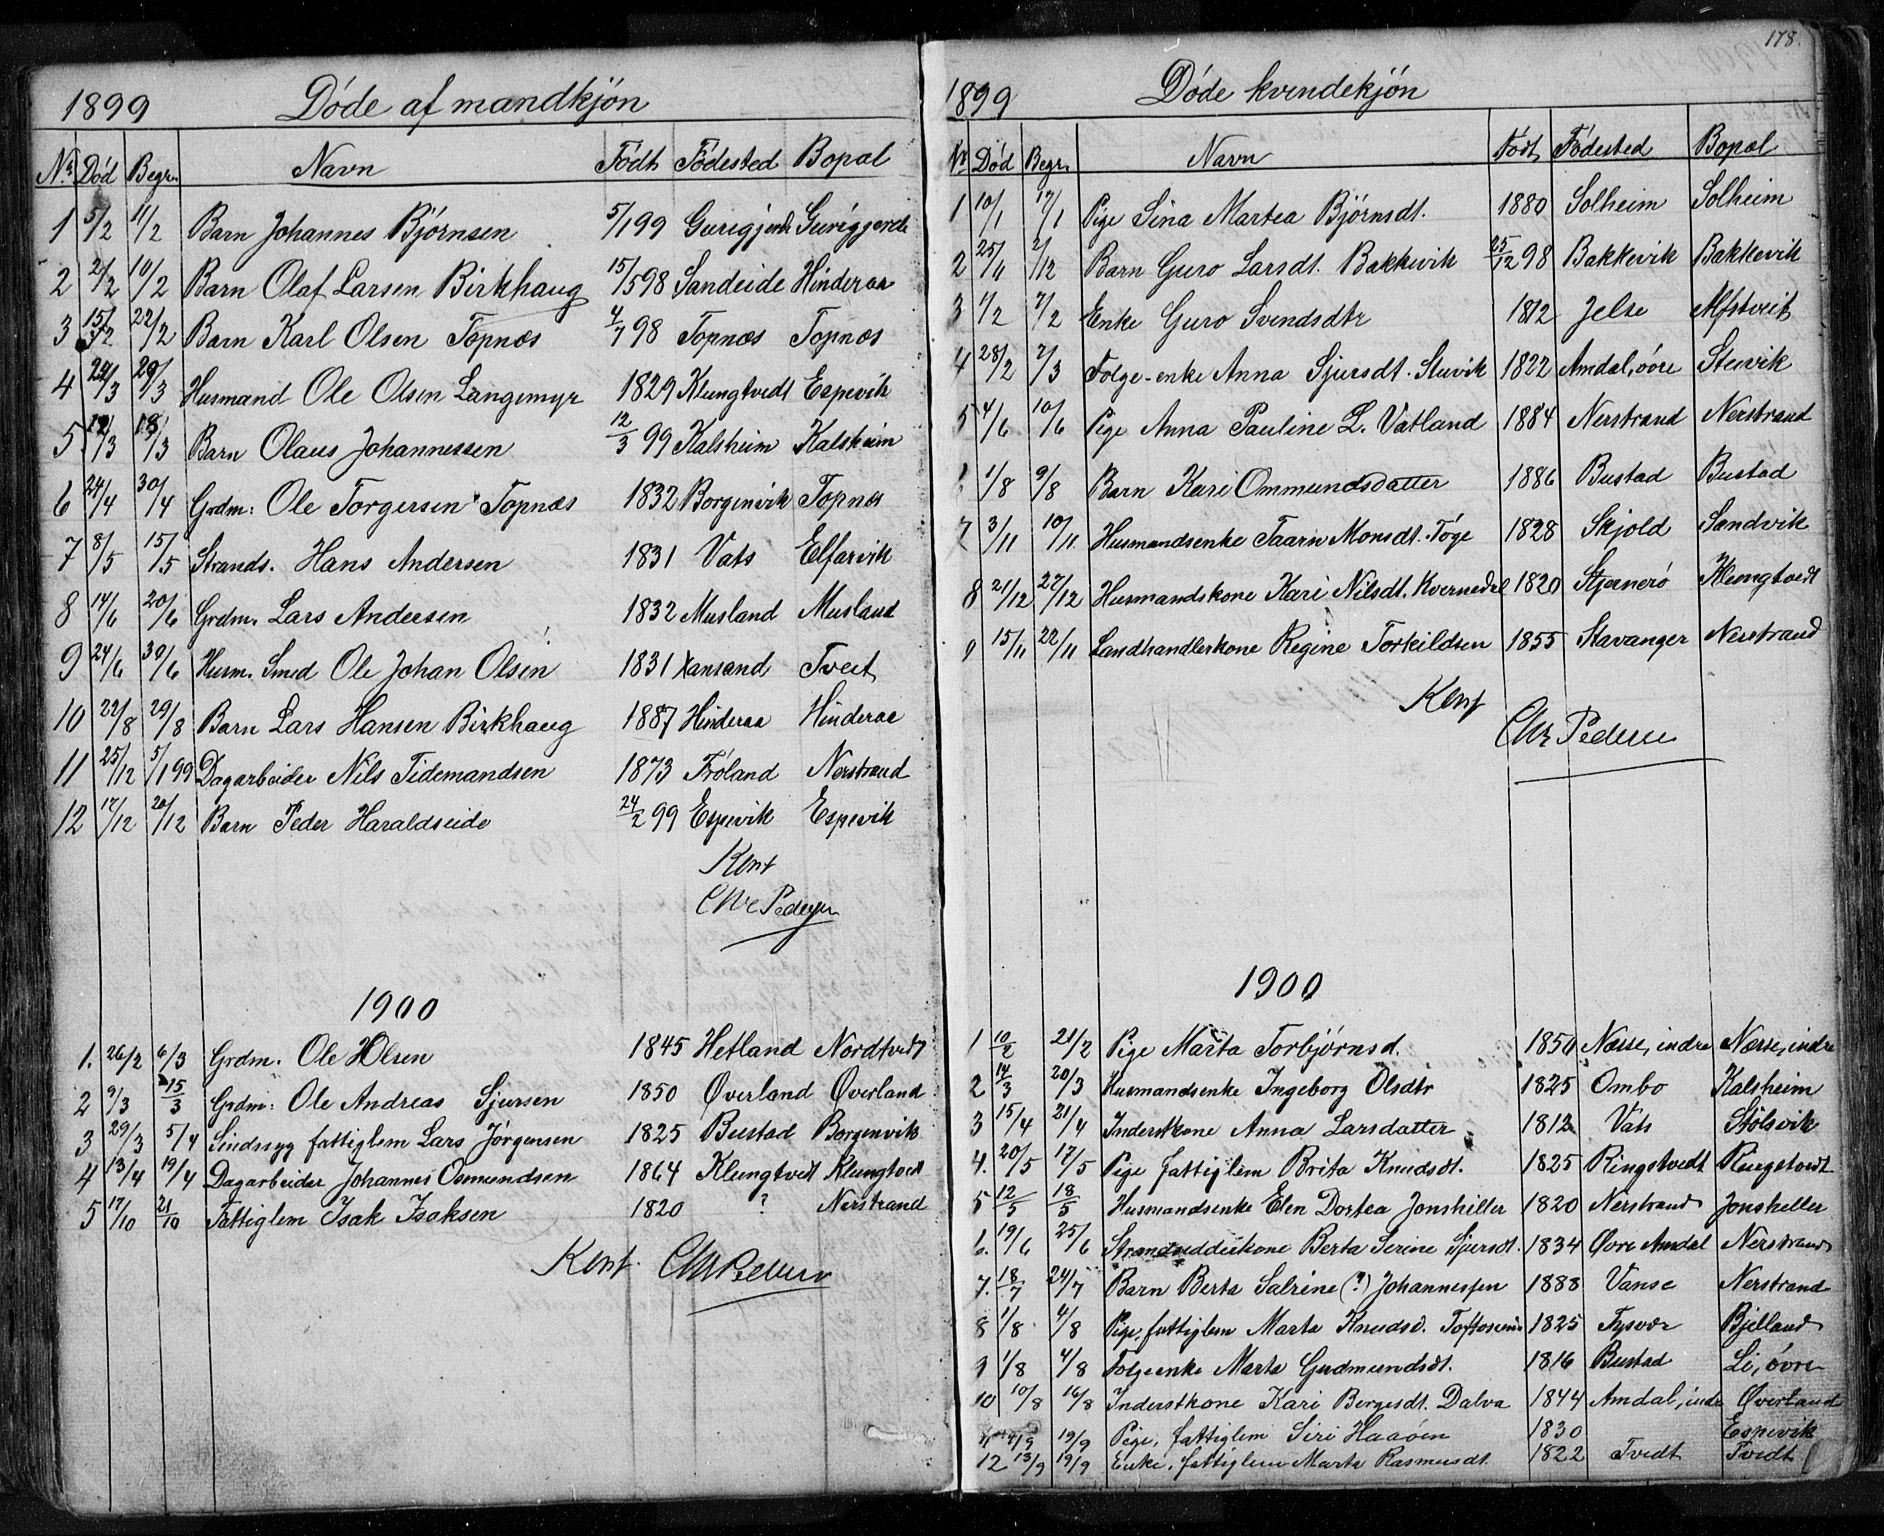 1899 Døde af mandkjøn
Nr. Død Begr. Navn Født Fødested Bopæl
1 5/2 11/2 Barn Johannes Bjørnsen 5/1 99 Gurigjerde Guriggjerde
2 2/2 10/2 Barn Olaf Larsen Birkhaug 15/5 98 Sandeide Hinderaa
3 15/2 22/2 Barn Karl Olsen Topnæs 4/7 98 Topnæs Topnæs
4 22/3 29/3 Husmand Ole Olsen Langemyr 1829 Klungtvedt Espevik
5 12/3 18/3 Barn Olaus Johannessen 12/3 99 Kalsheim Kalsheim
6 24/4 30/4 Grdm: Ole Torgersen Topnæs 1832 Borgenvik Topnæs
7 8/5 15/5 Strands. Hans Andersen 1831 Vats Elfarvik
8 14/6 20/6 Grdm. Lars Andersen 1832 Musland Musland
9 24/6 30/6 Husm. Smed Ole Johan Olsen 1831 Xansand Tveit
10 22/8 29/8 Barn Lars Hansen Birkhaug 1887 Hinderaa Hinderaa
11 25/12 5/1 99 Dagarbeider Nils Tidemandsen 1873 Frøland Nerstrand
12 17/12 20/12 Barn Peder Haraldseide 24/2 99 Espevik Espevik
Kenf
Chr Pedersen
1900
1. 26/2 6/3 Grdm. Ole Olsen 1845 Hetland Nordtvedt
2 9/3 15/3 Grdm: Ole Andreas Sjursen 1850 Øverland Øverland
3 29/3 5/4 Sindssyg fattiglem Lars Jørgensen 1825 Bustad Borgenvik
4 13/4 19/4 Dagarbeider Johannes Osmundsen 1864 Klungtvedt Klungtvedt
5 17/10 21/10 Fattiglem Isak Isaksen 1820 ? Nerstrand
Kenf. Chr Pedersen
178.
1899 Døde kvindekjøn
Nr Død Begr. Navn Født Fødested Bopæl
1 10/1 17/1 Pige Sina Martea Bjørnsdt. 1880 Solheim Solheim
2 25/11 2/12 Barn Guro Larsdt. Bakkevik 25/12 98 Bakkevik Bakkevik
3 1/2 7/2 Enke Guro Svendsdtr 1812 Jelse
4 28/2 7/3 Følge-enke Anna Sjursdt. Stuvik 1822 Amdal, øvre Stuvik
5 4/6 10/6 Pige Anna Pauline L. Vatland 1884 Nerstrand Nerstrand
1/8 9/8 Barn Kari Ommundsdatter 1886 Bustad Bustad
7 3/11 10/11 Husmandsenke Taarn Monsdt. Tøge 1828 Skjold Sandvik
8 21/12 27/12 Husmandskone Kari Nilsdt. Kvernedal 1820 Stjernerø Klungtvedt
9 15/11 22/11 Landhandlerkone Regine Torkildsen 1855 Stavanger Nerstrand
Kenf
Chr Pedersen
1900
1 10/2 21/2 Pige Marta Torbjørnsd. 1850 Næsse, indre Næsse, indre
2 14/3 20/3 Husmandsenke Ingeborg Olsdtr 1825 Ombo Kalsheim
3 15/4 21/4 Inderstkone Anna Larsdatter 1812 Vats Stølsvik
4. 20/5 17/5 Pige fattiglem Brita Knudsdt. 1825 Ringstvedt Ringstvedt
5 12/5 18/5 Husmandsenke Elen Dortea Jonshiller 1820 Nerstrand Jonsheller
6. 19/6 25/6 Strandsidderkone Berta Serine Sjursdt. 1834 Øvre Amdal Nerstrand
7. 18/7 24/7 Barn Berta Salrine (?) Johannessen 1888 Vanse Nerstrand
8 1/8 4/8 Pige, fattiglem Marta Knudsd. 1825 Tysvær Bjelland
9 1/8 4/8 Følgeenke Marta Gudmundsdt. 1816 Bustad Li, øvre
10 10/8 16/8 Inderstkone Kari Bergesdt. Dalva 1844 Amdal, indr Øverland
11 14/9 19/9 Pige, fattiglem Siri Haaøen 1830 Espevik
12 13/9 19/9 Enke, fattiglem Marta Rasmusdt. 1822 Tvedt Tvedt